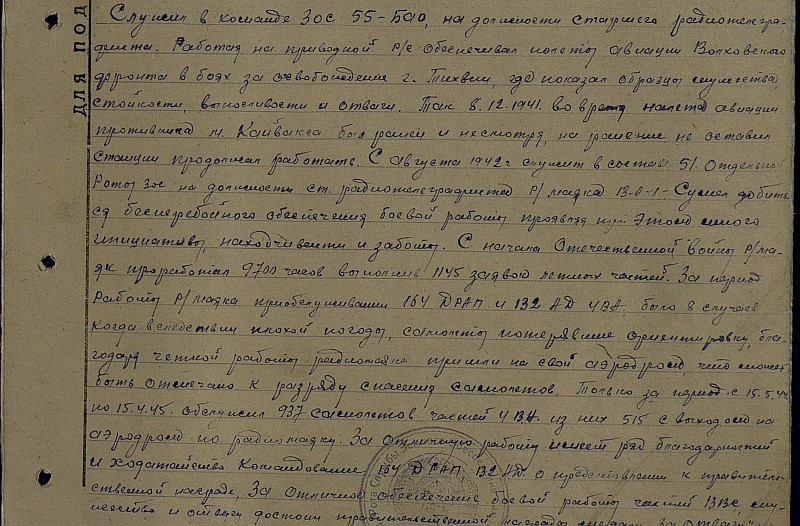 ДЛЯ ПОД
Служил в команде Зос 55-Бао, на должности старшего радиотелегра-
фиста. Работая на приводной Р/с обеспечивал полеты авиации Волховского
фронта в боях за освобождение г. Тихвин, где показал образцы мужества,
стойкости, выносливости и отваги. Так 8.12.1941. во время налета авиации
противника м. Кайвакса был ранен и несмотря, на ранение не оставил
станции продолжал работать. С августа 1942г служит в составе 51. отдельной
Роты Зос на должности ст. радиотелеграфиста Р/маяка Сумел добить
ся бесперебойного обеспечения боевой работы проявляя при этом много
инициативы, находчивости и заботы. С начала Отечественной войны Р/ма-
як проработал 9700 часов выполнив 1145 заявок летных частей. За период
Работы Р/маяка при обслуживании 164 ДРАП и 132 АД 4ВА. было 8 случаев
когда вследствии плохой погоды, самолеты потерявшие ориентировку, бла-
годаря четкой работы радиомаяка пришли на свой аэродром что может
быть отмечено к разряду спасения самолетов. Только за период с 15.5.44
по 15.4.45. обслужил 937 самолетов частей 4ВА. из них 515 с выходом на
аэродром по радиомаяку. За отличную работу имеет ряд благодарностей
и ходатайство Командование 164 ДРАП 132 АД. о представлении к правитель-
ственной награде. За отличное обеспечение боевой работы частей ВВС, му-
жество и отвагу достоин правительственной награды медали "За отвагу"